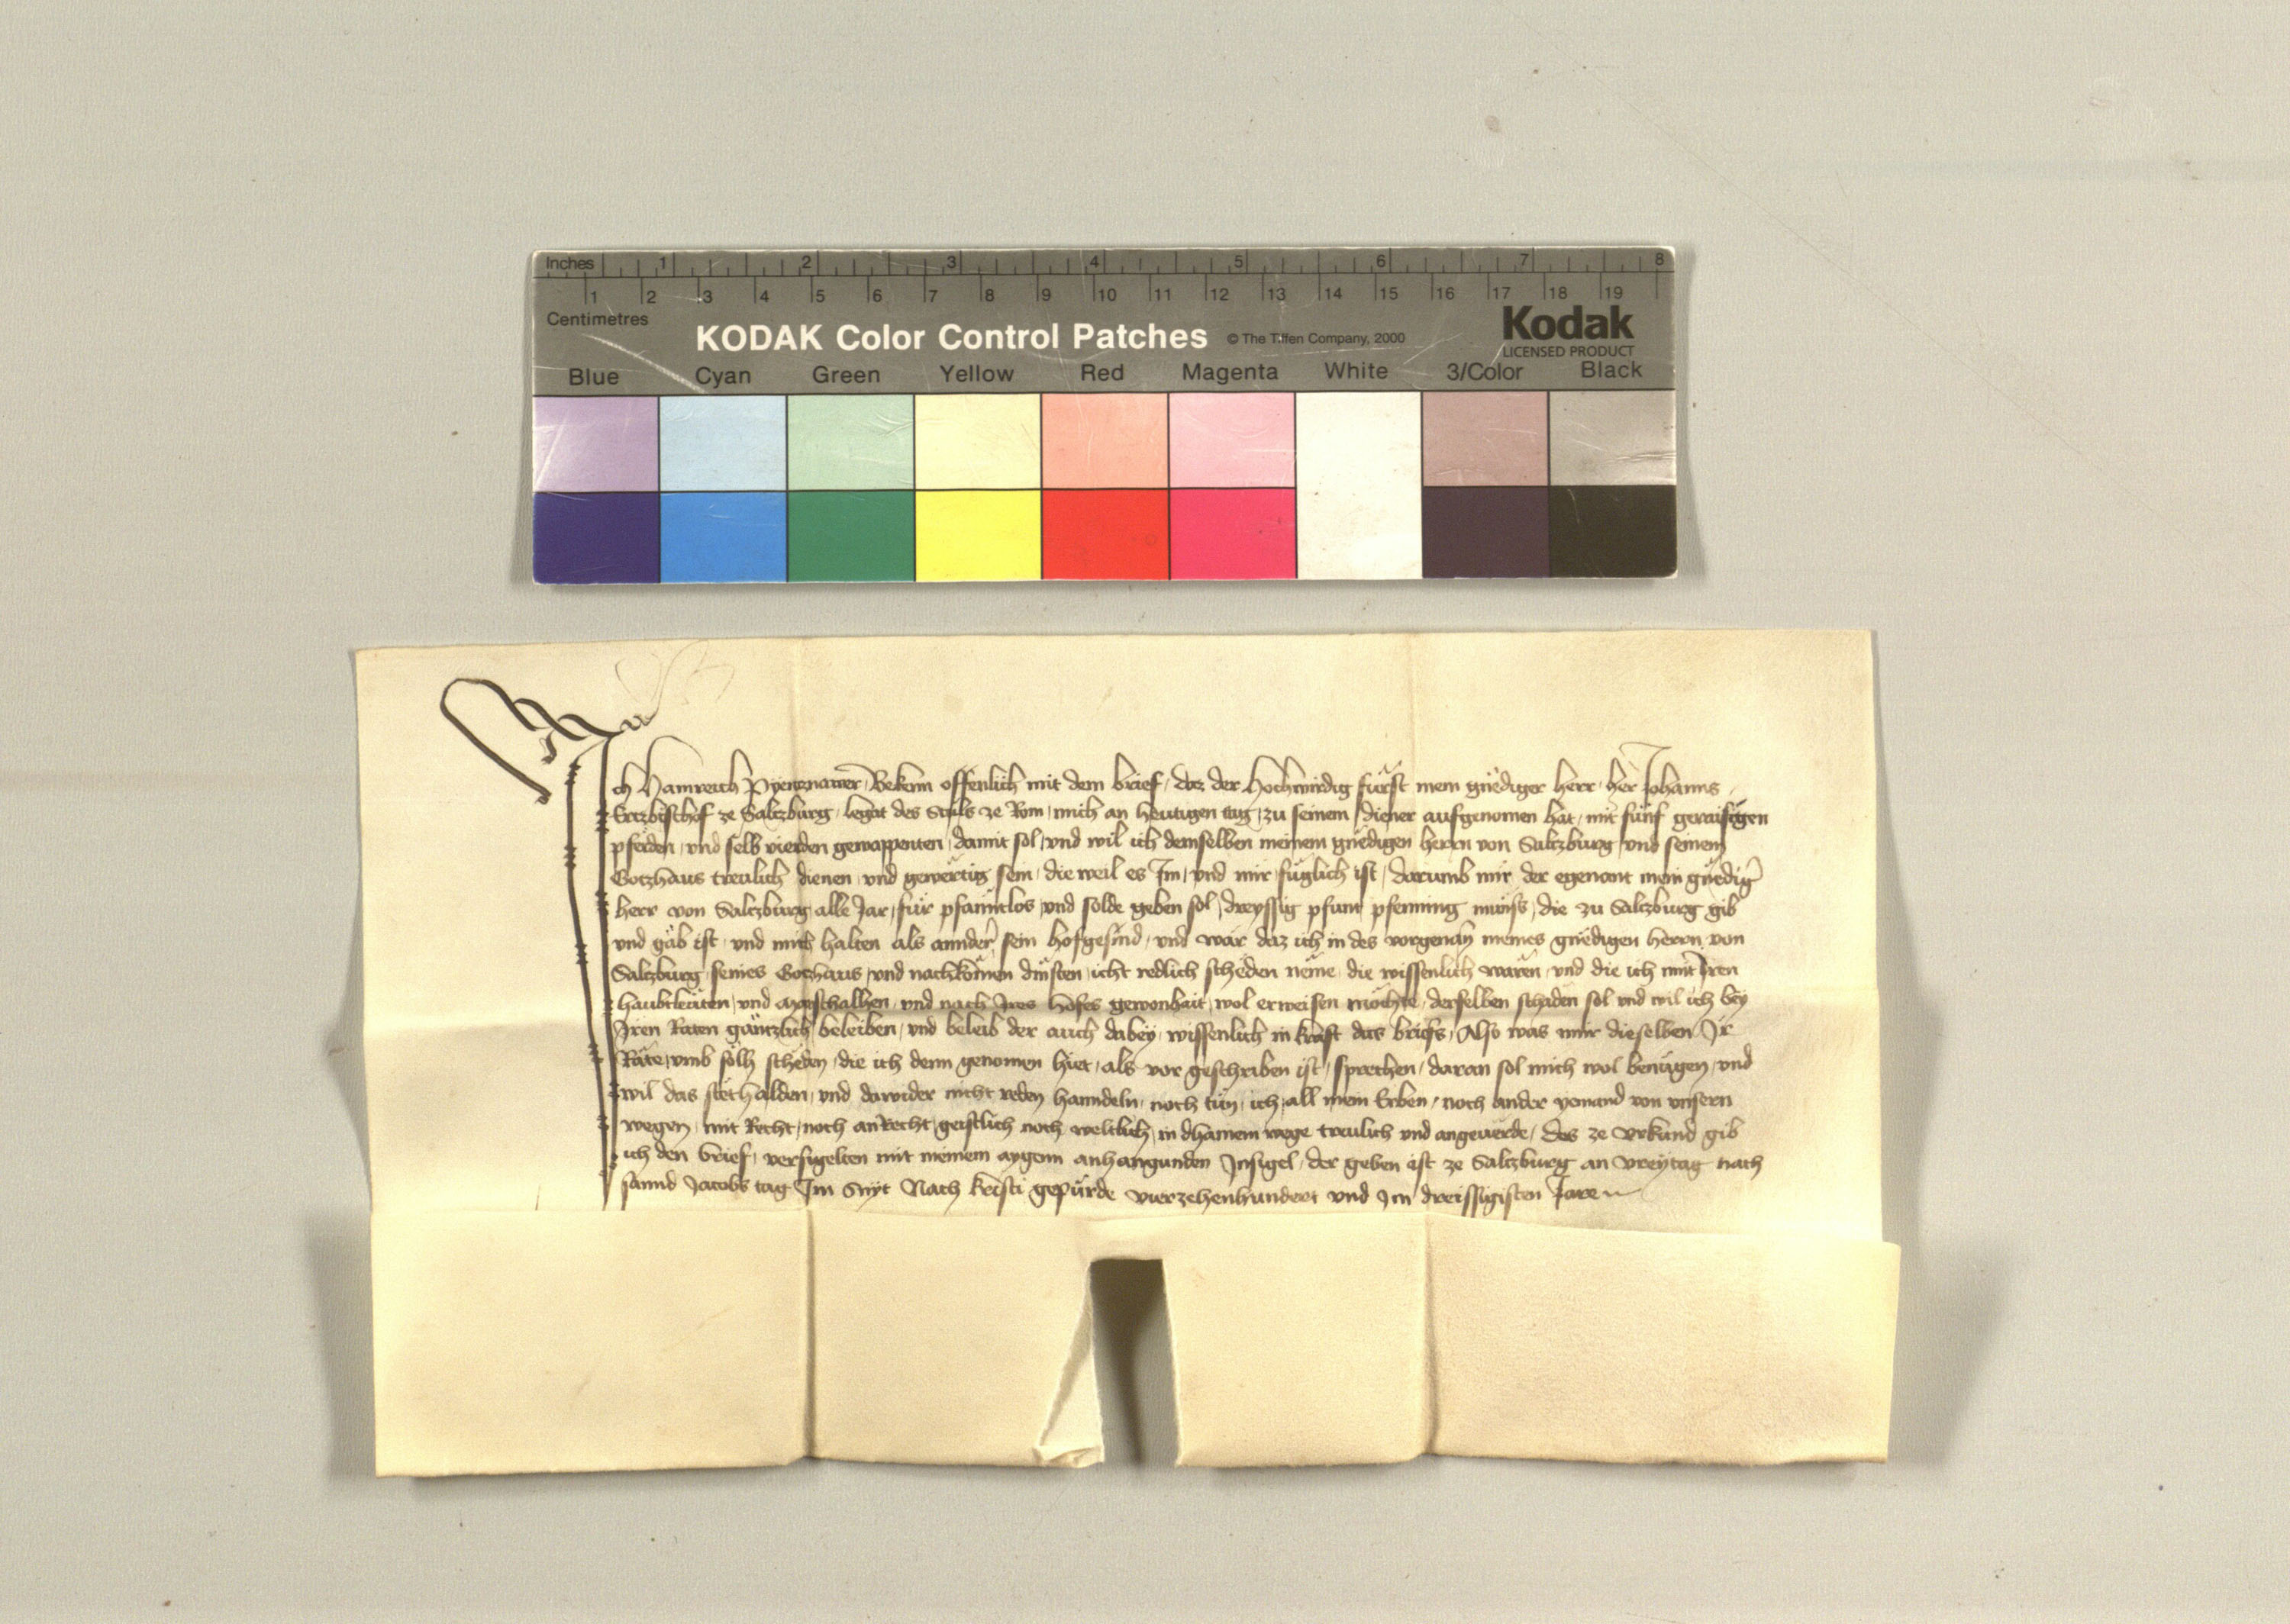 Inches 1 2 3 4 5 6 7 8
1 2 3 4 5 6 7 8 9 10 11 12 13 14 15 16 17 18 19
Centimetres
KODAK Color Control Patches © The Tiffen Company, 2000 Kodak
LICENSED PRODUCT
Blue Cyan Green Yellow Red Magenta White 3/Color Black
Ich Hainreich Pyentznawer Bekenn offenlich mit dem brief, daz der Hochwirdig fürst mein gnëdiger herr, her Johanns
Ertzbischof ze Saltzburg, legat des Stuls ze Rom, mich an heutigen tag, zu seinem diener aufgenomen hat, mit fünf geraisigen
pferden, vnd selb vierden gewappenten, damit sol, vnd wil ich demselben meinem gnëdigen herrn von Saltzburg, vnd seinem
Gotzhaus treulich dienen, vnd gewërtig sein, die weil es Im, vnd mir füglich ist, darumb mir der egenant mein gnëdig
herr von Saltzburg alle Jar, für pfanntlos, vnd solde geben sol, dreyssig pfunt pfenning münss, die zu Saltzburg gib
vnd gäb ist, vnd mich halten als annder sein hofgesind, vnd wär daz ich in des vorgenan meines gnëdigen herrn von
Saltzburg, seines Gotzhaus, vnd nachkomen dinsten, icht redlich schëden nëme, die wissenlich wären, vnd die ich mit Iren
haubtleuten, vnd Marschalhen, vnd nach Ires hofes gewonhait, wol erweisen möchte, derselben schäden sol vnd wil ich bey
Iren Räten gäntzlich beleiben, vnd beleib der auch dabey, wissenlich in kraft dits briefs, Also was mir dieselben Ir
Räte, vmb sölh schëden, die ich denn genomen hiet, als vor geschriben ist, sprechen, daran sol mich wol benügen, vnd
wil das stët halden, vnd dawider nicht reden hanndeln, noch tün, ich, all mein Erben, noch ander yemand von vnsern
wegen, mit Recht, noch an Recht, geistlich noch weltlich, in dhainem wege treulich vnd angeuërde, des ze vrkund gib
ich den brief, versigelten mit meinem aygenn anhangunden Insigel, der geben ist ze Saltzburg an vreytag nach
sannd Jacobs tag Im Snyt Nach kristi gepürde vierzehenhundert vnd Im dreissigisten Jare